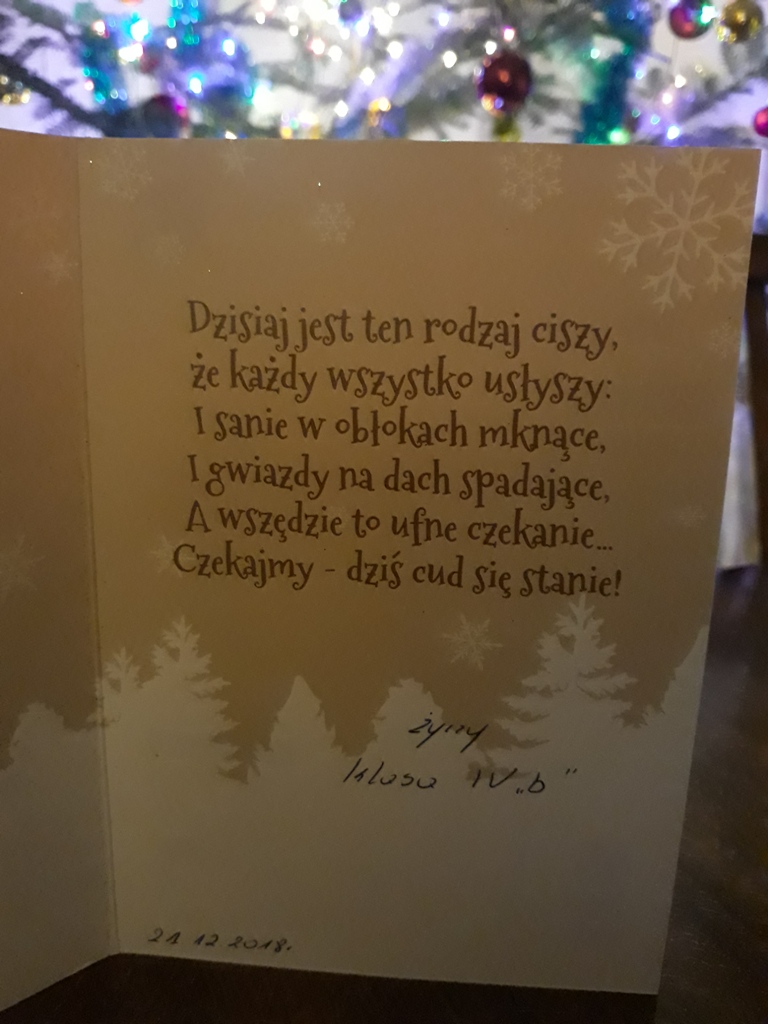 Dzisiaj jest ten rodzaj ciszy,
że każdy wszystko usłyszy:
I sanie w obłokach mknące,
I gwiazdy na dach spadające,
A wszędzie to ufne czekanie...
Czekajmy - dziś cud się stanie!
klasa IV „b"
21 12 2018.